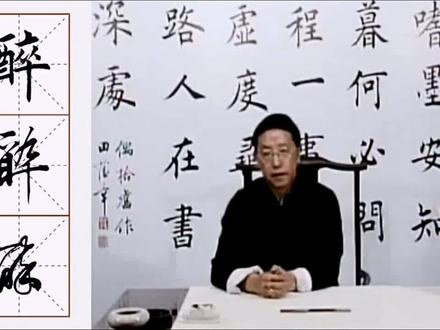 醉
醉
醉
嗜墨安知
暮何必問
程一
虛度
路人在書
深處
偶拾舊作
田蘊章